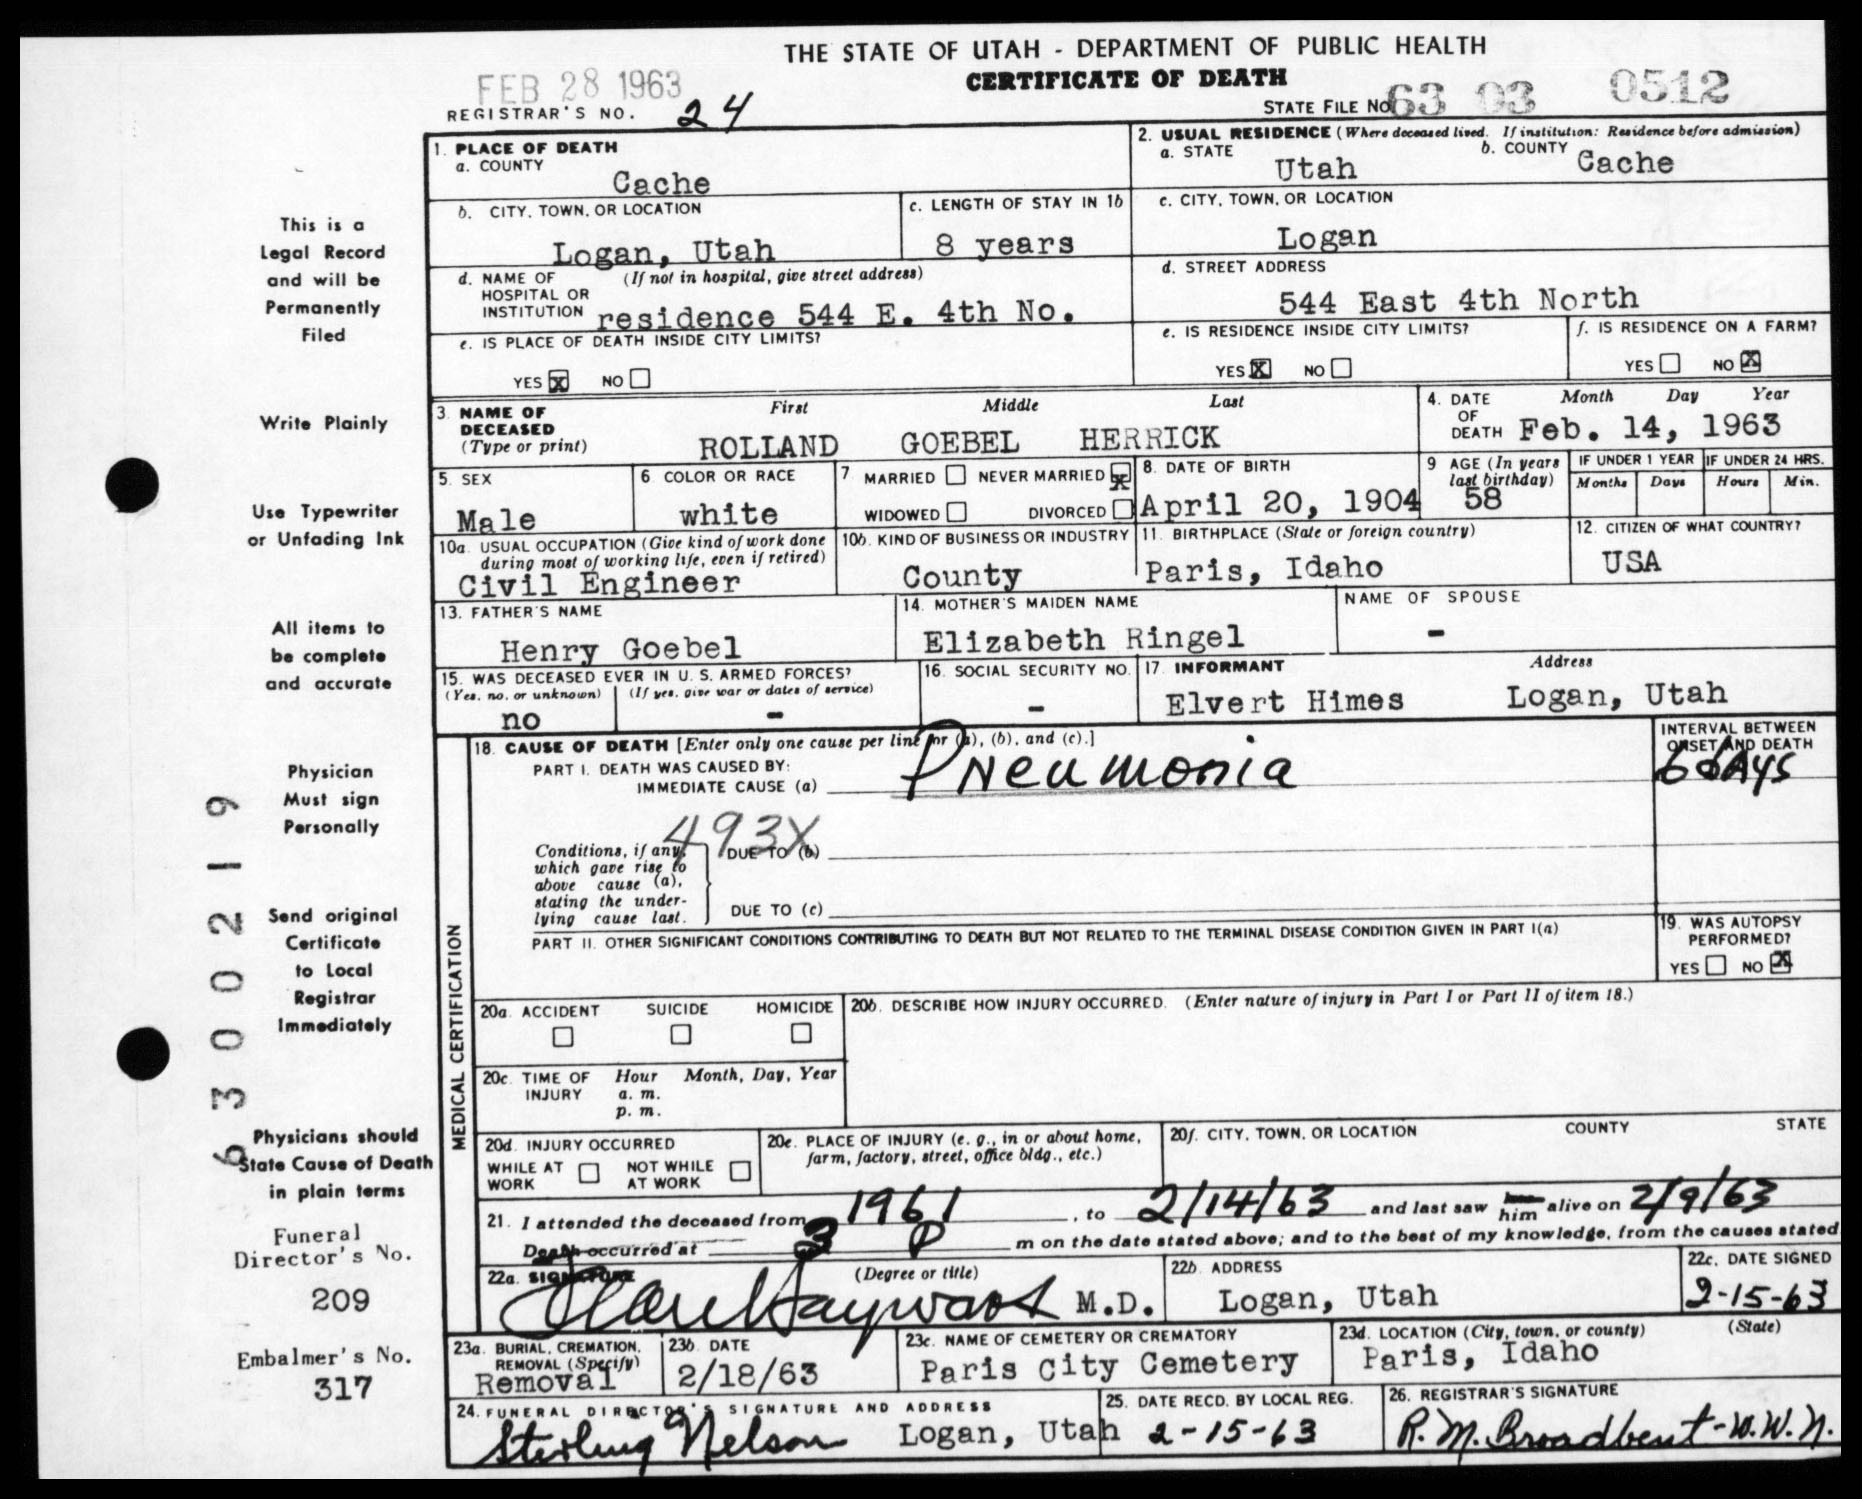 THE STATE OF UTAH - DEPARTMENT OF PUBLIC HEALTH
FEB 28 1963
CERTIFICATE OF DEATH
REGISTRAR'S NO. 24
STATE FILE NO. 63 03 0512
1. PLACE OF DEATH
a. COUNTY
Cache
2. USUAL RESIDENCE (Where deceased lived. If institution: Residence before admission)
a. STATE Utah b. COUNTY Cache
b. CITY, TOWN, OR LOCATION
Logan, Utah
c. LENGTH OF STAY IN 1b
8 years
c. CITY, TOWN, OR LOCATION
Logan
d. NAME OF HOSPITAL OR INSTITUTION (If not in hospital, give street address)
residence 544 E. 4th No.
d. STREET ADDRESS
544 East 4th North
e. IS PLACE OF DEATH INSIDE CITY LIMITS?
YES X NO
e. IS RESIDENCE INSIDE CITY LIMITS?
YES X NO
f. IS RESIDENCE ON A FARM?
YES NO X
3. NAME OF DECEASED (Type or print)
First Middle Last
ROLLAND GOEBEL HERRICK
4. DATE OF DEATH Month Day Year
Feb. 14, 1963
5. SEX
Male
6. COLOR OR RACE
white
7. MARRIED NEVER MARRIED X
WIDOWED DIVORCED
8. DATE OF BIRTH
April 20, 1904
9 AGE (In years last birthday)
58
IF UNDER 1 YEAR
Months Days
IF UNDER 24 HRS.
Hours Min.
10a. USUAL OCCUPATION (Give kind of work done during most of working life, even if retired)
Civil Engineer
10b. KIND OF BUSINESS OR INDUSTRY
County
11. BIRTHPLACE (State or foreign country)
Paris, Idaho
12. CITIZEN OF WHAT COUNTRY?
USA
13. FATHER'S NAME
Henry Goebel
14. MOTHER'S MAIDEN NAME
Elizabeth Ringel
NAME OF SPOUSE
-
15. WAS DECEASED EVER IN U. S. ARMED FORCES?
(Yes, no, or unknown) (If yes, give war or dates of service)
no -
16. SOCIAL SECURITY NO.
-
17. INFORMANT Address
Elvert Himes Logan, Utah
MEDICAL CERTIFICATION
18. CAUSE OF DEATH [Enter only one cause per line for (a), (b), and (c).]
PART I. DEATH WAS CAUSED BY:
IMMEDIATE CAUSE (a) Pneumonia
INTERVAL BETWEEN ONSET AND DEATH
6 days
493X
Conditions, if any, which gave rise to above cause (a), stating the underlying cause last.
DUE TO (b)
DUE TO (c)
PART II. OTHER SIGNIFICANT CONDITIONS CONTRIBUTING TO DEATH BUT NOT RELATED TO THE TERMINAL DISEASE CONDITION GIVEN IN PART I(a)
19. WAS AUTOPSY PERFORMED?
YES NO X
20a. ACCIDENT SUICIDE HOMICIDE
20b. DESCRIBE HOW INJURY OCCURRED. (Enter nature of injury in Part I or Part II of item 18.)
20c. TIME OF INJURY Hour Month, Day, Year
a. m.
p. m.
20d. INJURY OCCURRED
WHILE AT WORK NOT WHILE AT WORK
20e. PLACE OF INJURY (e. g., in or about home, farm, factory, street, office bldg., etc.)
20f. CITY, TOWN, OR LOCATION COUNTY STATE
21. I attended the deceased from 1961, to 2/14/63 and last saw him alive on 2/9/63
Death occurred at 3 P m on the date stated above; and to the best of my knowledge, from the causes stated
22a. SIGNATURE (Degree or title)
Hayward M.D.
22b. ADDRESS
Logan, Utah
22c. DATE SIGNED
2-15-63
23a. BURIAL, CREMATION, REMOVAL (Specify)
Removal
23b. DATE
2/18/63
23c. NAME OF CEMETERY OR CREMATORY
Paris City Cemetery
23d. LOCATION (City, town, or county) (State)
Paris, Idaho
24. FUNERAL DIRECTOR'S SIGNATURE AND ADDRESS
Sterling Nelson Logan, Utah
25. DATE RECD. BY LOCAL REG.
2-15-63
26. REGISTRAR'S SIGNATURE
R. M. Broadbent - W. W. N.
This is a
Legal Record
and will be
Permanently
Filed
Write Plainly
Use Typewriter
or Unfading Ink
All items to
be complete
and accurate
Physician
Must sign
Personally
Send original
Certificate
to Local
Registrar
Immediately
Physicians should
State Cause of Death
in plain terms
Funeral
Director's No.
209
Embalmer's No.
317
6300219